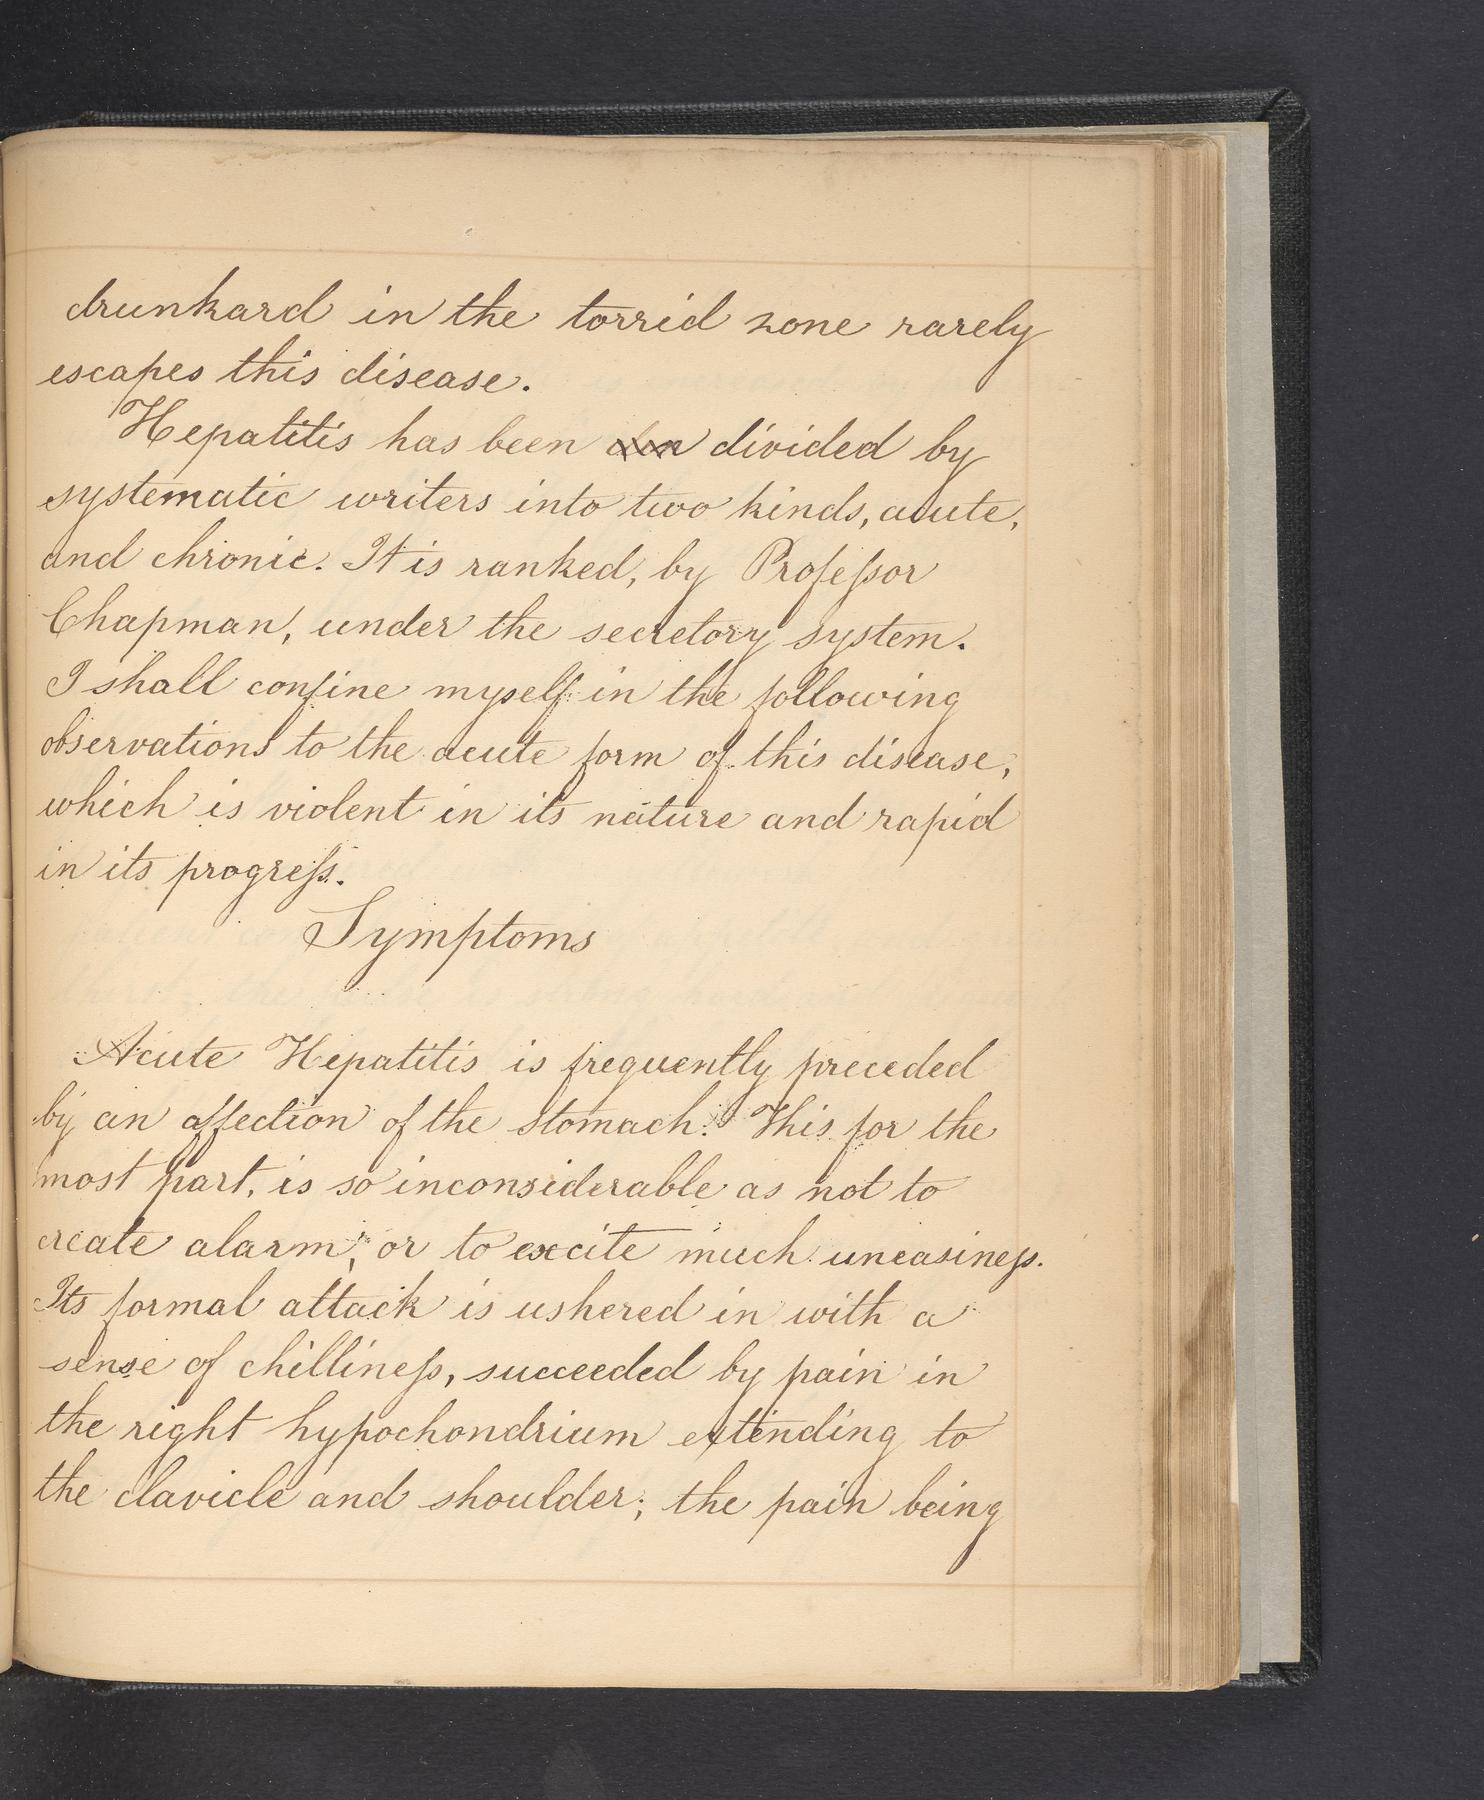 drunkard in the torrid zone rarely
escapes this disease.
Hepatitis has been divided by
systematic writers into two kinds, acute,
and chronic. It is ranked, by Profeſsor
Chapman, under the secretory system.
I shall confine myself in the following
observations to the acute form of this disease,
which is violent in its nature and rapid
in its progreſs.
Symptoms
Acute Hepatitis is frequently preceded
by an affection of the stomach. This for the
most part, is so inconsiderable as not to
create alarm, or to excite much uneasineſs.
Its formal attack is ushered in with a
sense of chillineſs, succeeded by pain in
the right hypochondrium extending to
the clavicle and shoulder; the pain being